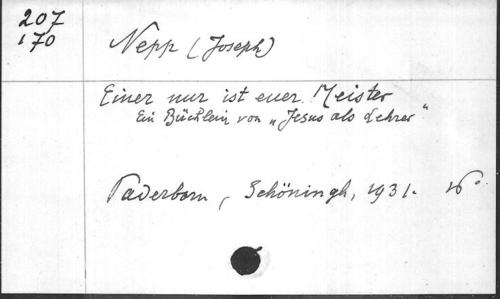 207
170
Nepp (Joseph)
Einer nur ist euer Meister
Ein Büchlein von „Jesus als Lehrer"
Paderborn, Schöningh, 1931. 16°